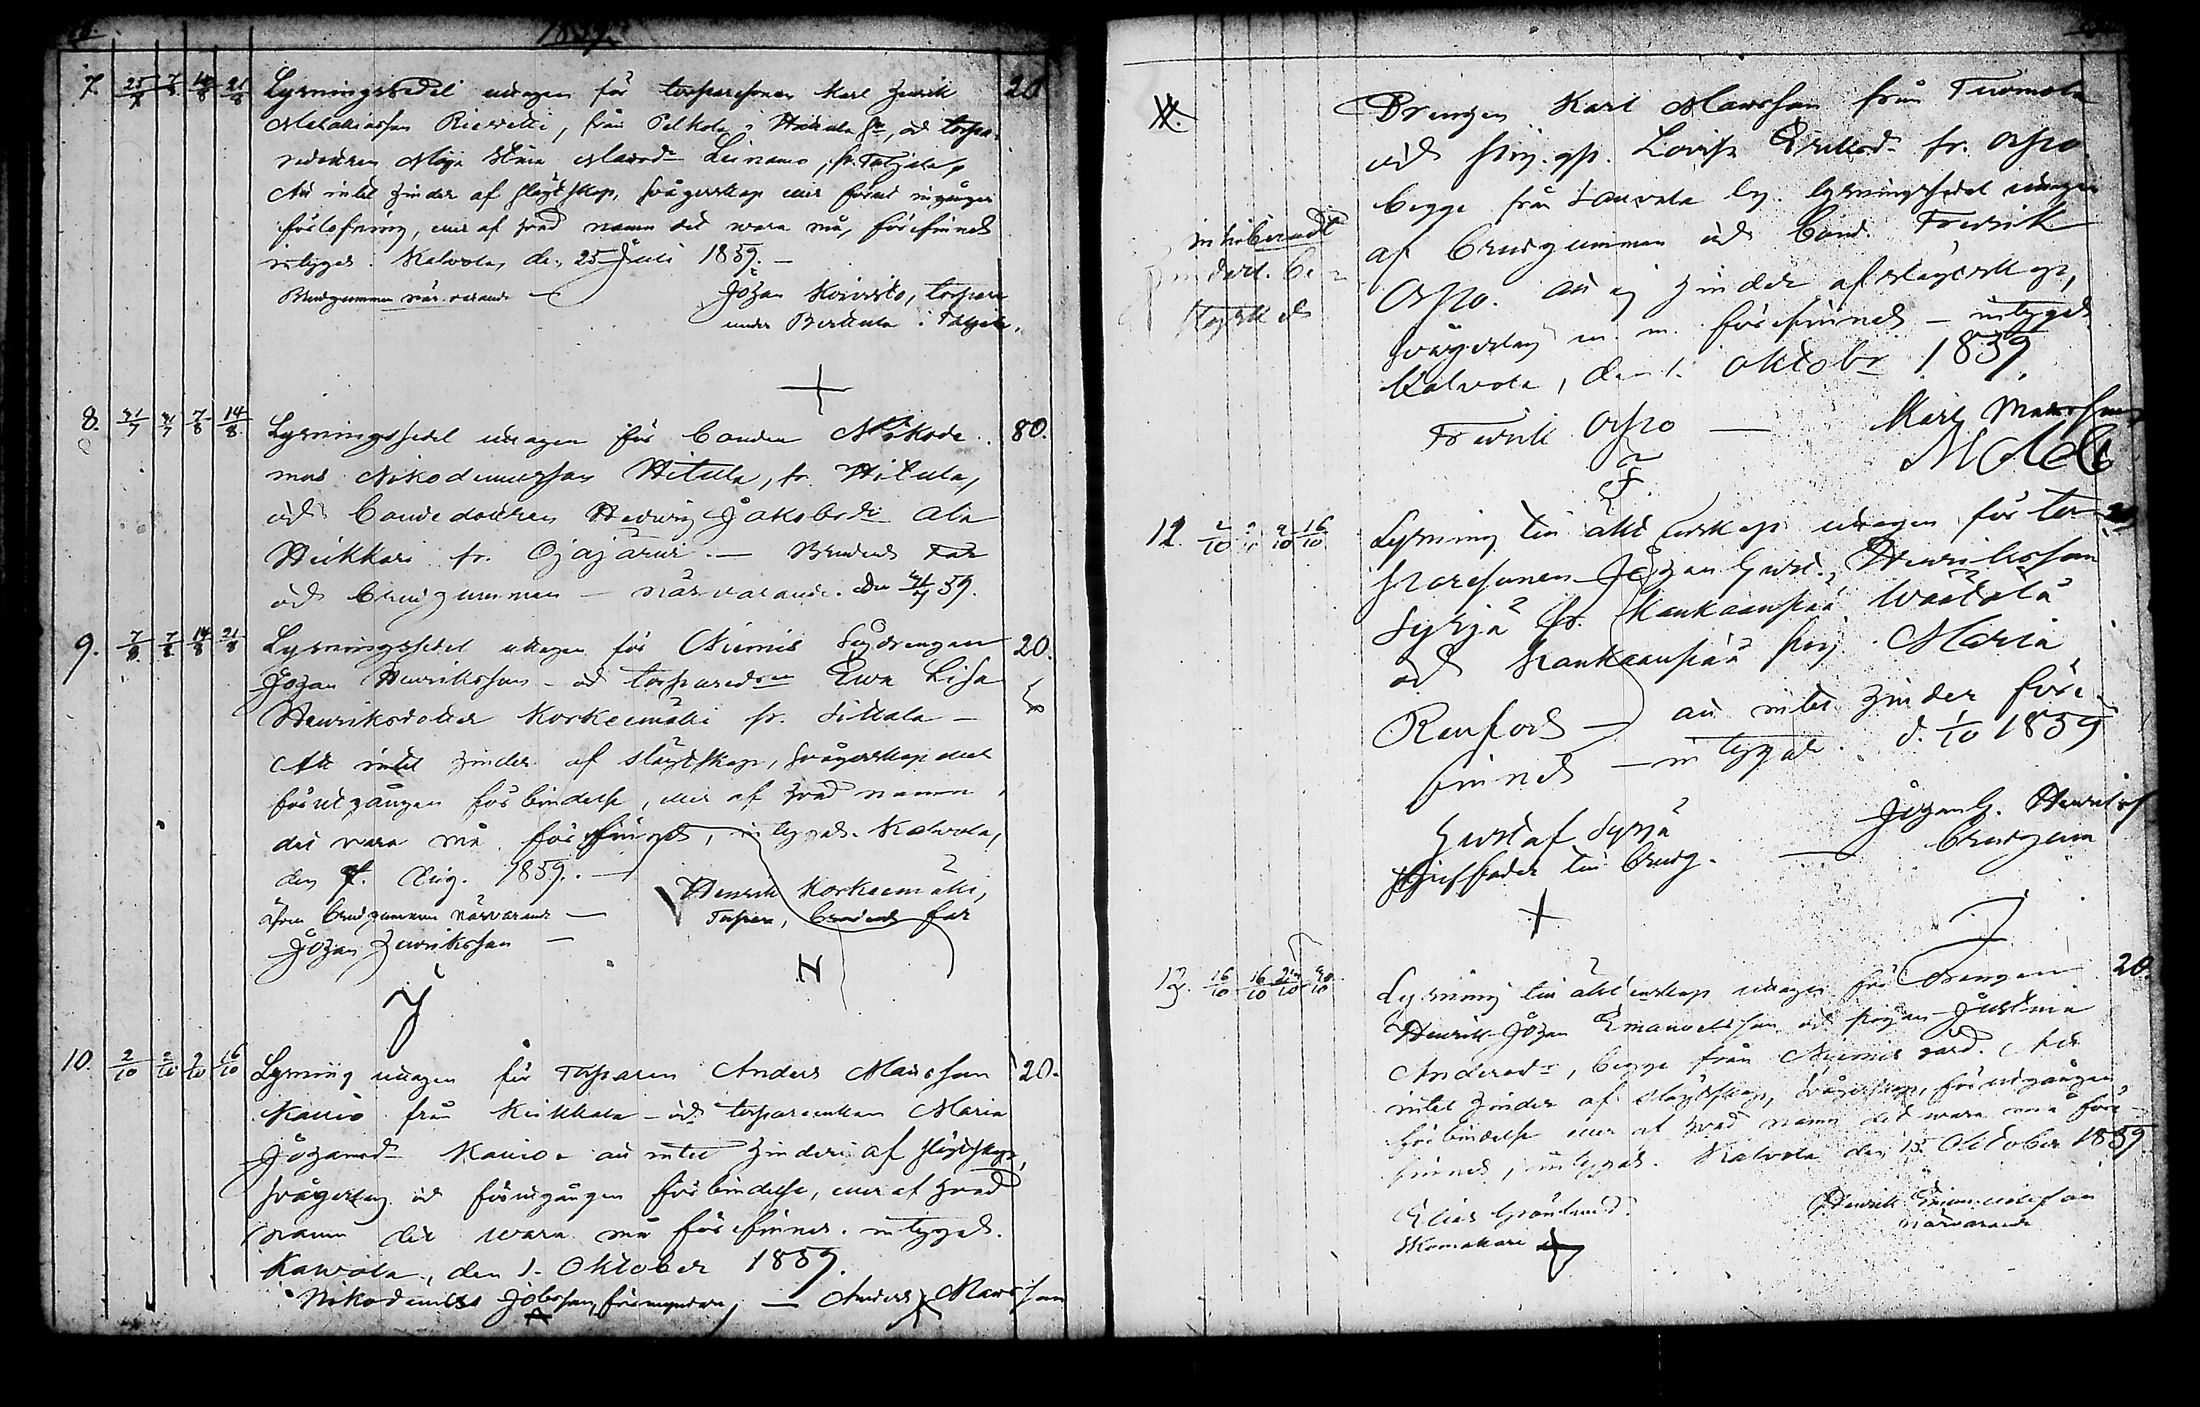 1859.
7. 25/7 7/8 14/8 21/8 Lysningssedel uttagen för torparesonen Karl Henrik 20
Mathiasson, från Pelkola i Hattula Sn, och torpa-
redottren Maja Stina Leinamo, fr. Taljala,
Att intet hinder af slägtskap, svågerskap eller förut ingången
förlofning, eller af hvad namn det vara må, förefinnes
intygas. Kalvola, den 25 Juli 1859. —
Brudgummen närvarande — Johan Koivisto, torpare
under Perttula i Taljala.
8. 31/7 31/7 7/8 14/8. Lysningssedel uttagen för bonden Nikode- 80.
mus Nikodemusson Hitula, fr. Hitula,
och bondedottren Hedwig Jakobsdr Ala
Heikkari fr. Ojajärwi. — Brudens Far
och brudgummen — närvarande. den 31/7 59.
9. 7/8 7/8 14/8 21/8 Lysningssedel uttagen för Niemis Sydrengen 20.
Johan Henriksson — och torparedtrn Ewa Lisa
Henriksdotter Korkeemäki fr. Sittala —
Att intet hinder af slägtskap, svågerskap eller
förutgången förbindelse, eller af hvad namn
det vara må, förefinnes, intygas. Kalvola,
den 7. Aug. 1859. —
äfven brudgummen närvarande — Henrik Korkeemäki,
Johan Henriksson — Torpare, brudens far
10. 2/10 2/10 9/10 16/10 Lysning uttagen för Torparen Anders Mattsson 20.
från Keikkala — och torpareenkan Maria
Johansd. att intet hinder af slägtskap,
svågerskap och förutgången förbindelse, eller af hvad
namn det vara må förefinnes. intygas.
Kalvola, den 1. Oktober 1859.
Nikodemus Jobsson, förmyndare, — Anders Mattsson
11. Drengen Karl Mattsson från Tuomola
och pig. Lovisa Eriksd. fr. Orpo
begge från Sauvala by. lysningssedel uttagen
af brudgummen och bond. Fredrik
Orpo. att ej hinder af slägtskap,
svågerskap m. m. förefinnes — intygas
Kalvola, den 1. Oktobr 1859.
Fredrik Orpo — Karl Mattsson
12. 2/10 2/10 9/10 16/10 Lysning till äktenskap uttagen för tor- 20
paresonen Johan Gust. Henriksson
Syrjä fr. Kankaanpää
och Kankaanpää pig. Maria
Renfors — att intet hinder före-
finnes — intygas. d. 1/10 1859
Gustaf Syrjä Johan G. Henriksson
Styffader till brudg. — brudgum
13. 16/10 16/10 23/10 30/10 Lysning till äktenskap uttagen för drengen 20.
Henrik Johan Emanuelsson och pigan Justina
Andersdr, begge från Niemis gård. Att
intet hinder af slägtskap, svågerskap, förutgången
förbindelse eller af hvad namn det vara må före-
finnes, intygas. Kalvola den 15. Oktober 1859.
Elias Grönlund. Henrik Emanuelsson
Skomakare närvarande